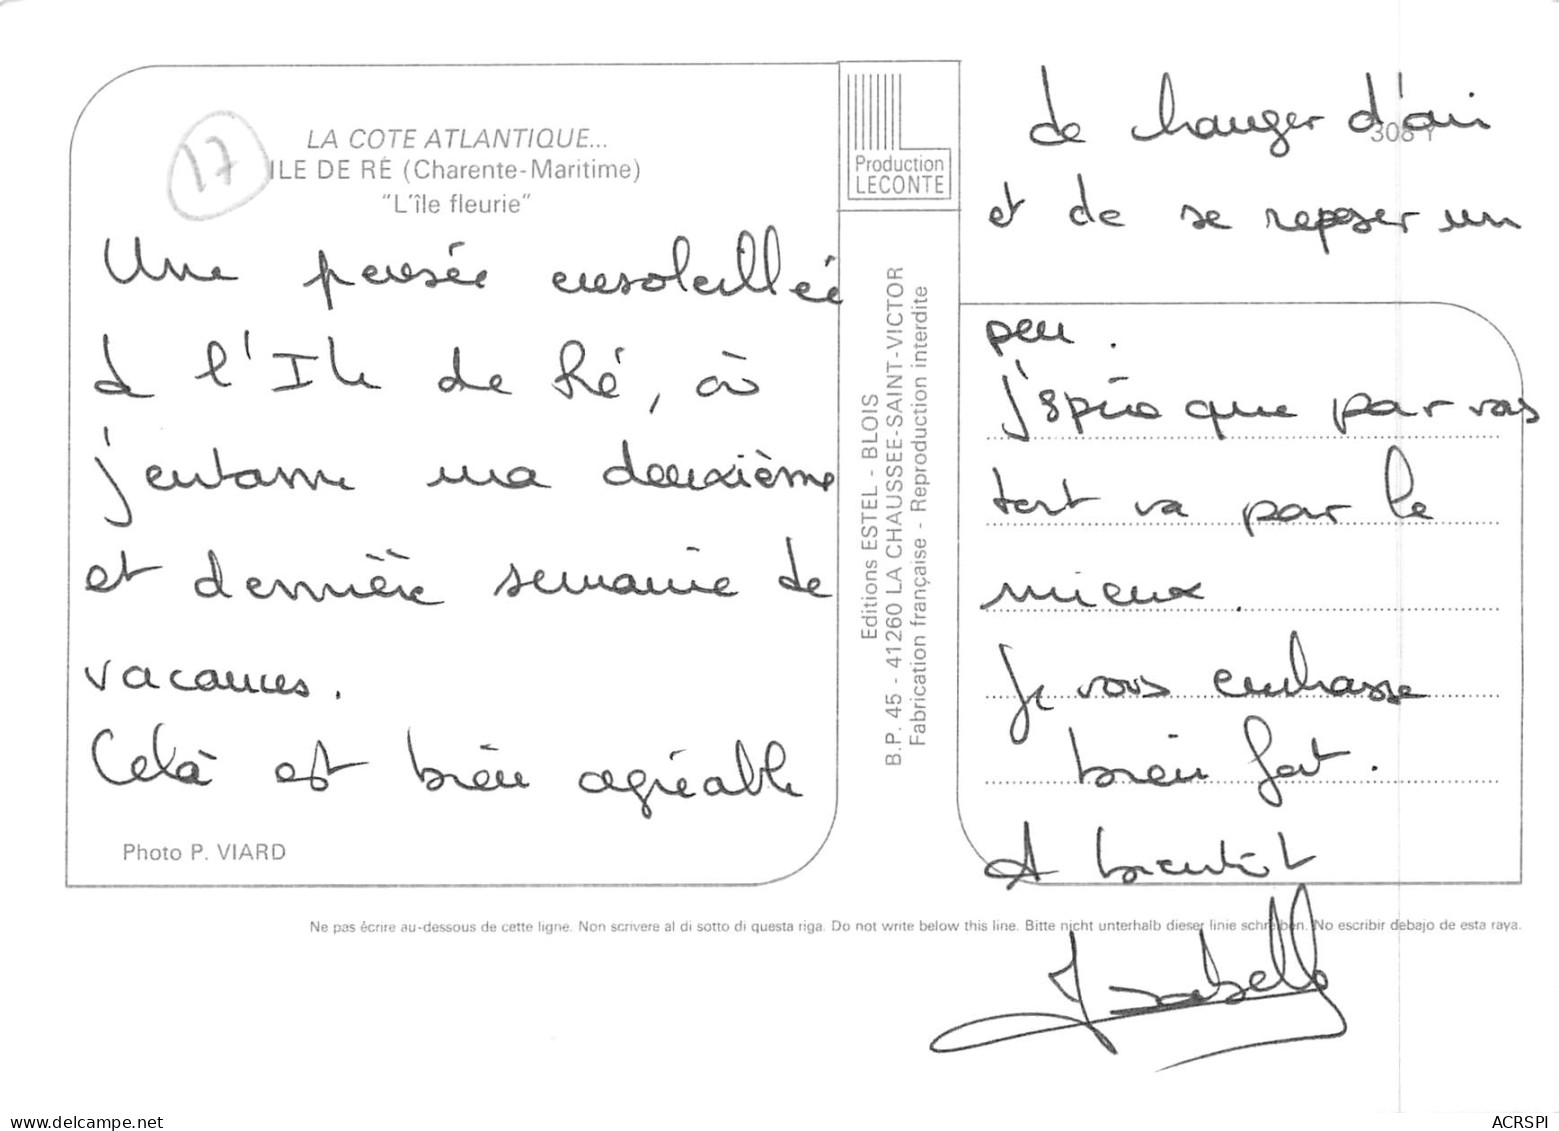 17
LA COTE ATLANTIQUE...
ILE DE RÉ (Charente-Maritime)
"L'île fleurie"
Une pensée ensoleillée
de l'Ile de Ré, où
j'entame ma deuxième
et dernière semaine de
vacances.
Celà est bien agréable
Photo P. VIARD
Production
LECONTE
Editions ESTEL - BLOIS
B.P. 45 - 41260 LA CHAUSSEE-SAINT-VICTOR
Fabrication française - Reproduction interdite
308 Y
de changer d'air
et de se reposer un
peu.
J'espère que par vos
tout va par le
mieux.
Je vous embrasse
bien fort.
A bientôt
Isabelle
Ne pas écrire au-dessous de cette ligne. Non scrivere al di sotto di questa riga. Do not write below this line. Bitte nicht unterhalb dieser linie schreiben. No escribir debajo de esta raya.
www.delcampe.net
ACRSPI